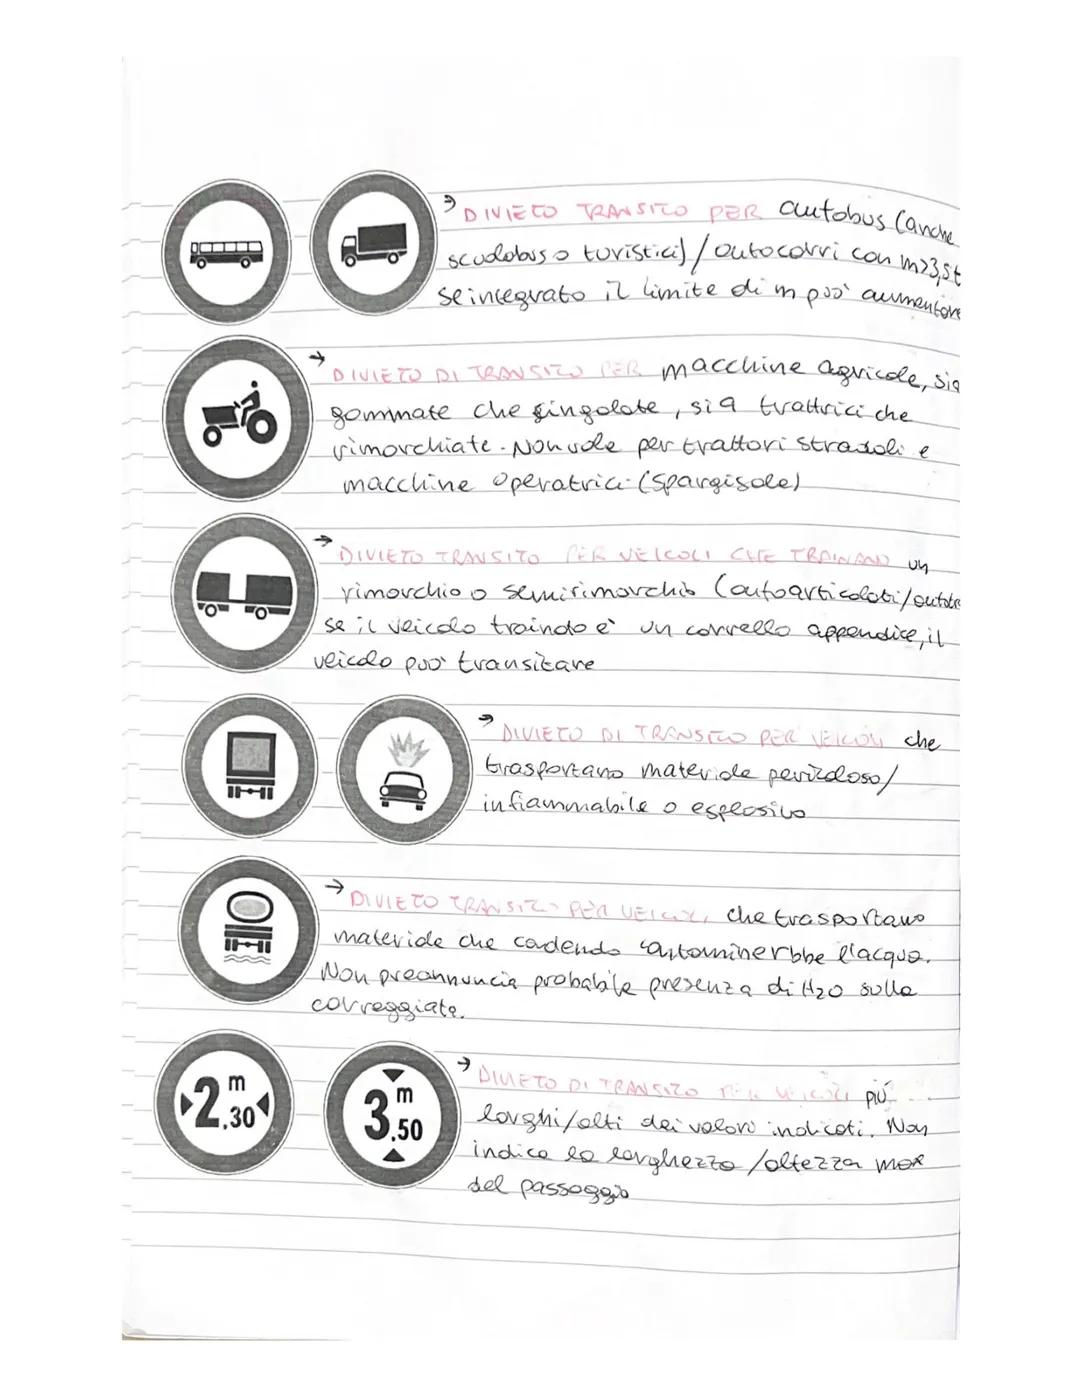 → DIVIETO TRANSITO PER autobus (anche
scuolabus o turistici) / autocarri con m>3,5t
se integrato il limite di m può aumentare
→ DIVIETO DI TRANSITO PER macchine agricole, sia
gommate che cingolate, sia trattrici che
rimorchiate. Non vale per trattori stradali e
macchine operatrici (spargisale)
→ DIVIETO TRANSITO PER VEICOLI CHE TRAINANO un
rimorchio o semirimorchio (autoarticolati/
se il veicolo trainato è un carrello appendice, il
veicolo può transitare
→ DIVIETO DI TRANSITO PER VEICOLI che
trasportano materiale pericoloso/
infiammabile o esplosivo
→ DIVIETO TRANSITO PER VEICOLI che trasportano
materiale che cadendo contaminerbbe l'acqua.
Non preannuncia probabile presenza di H2O sulla
carreggiata.
2,30 m
3,50 m
→ DIVIETO DI TRANSITO PER VEICOLI più
larghi/alti dei valori indicati. Non
indica la larghezza/altezza max
del passaggio